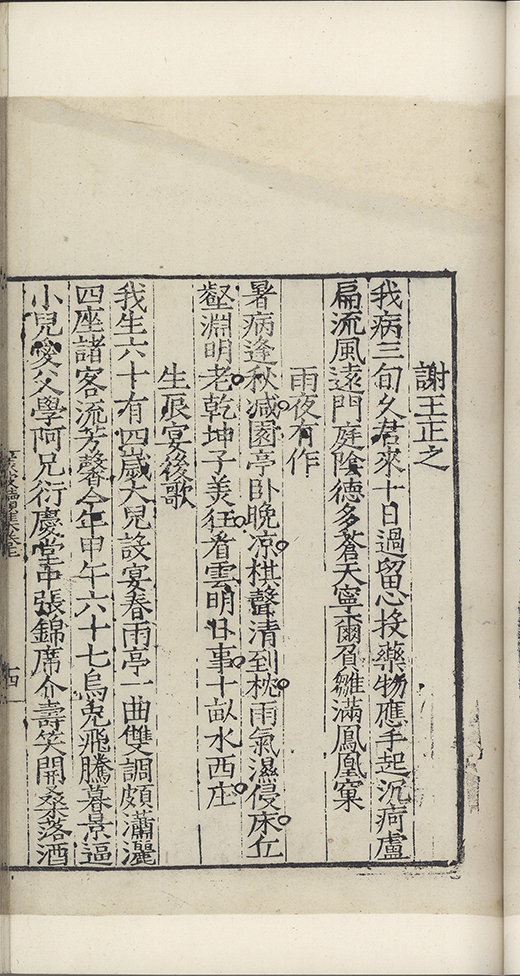 謝王正之
我病三旬久君來十日過留心投藥物應手起沉疴盧
扁流風遠門庭陰德多蒼天寧爾負雛滿鳳凰窠
雨夜有作
暑病逢秋減園亭卧晚凉棋聲清到枕雨氣濕侵床丘
壑淵明老乾坤子羙狂看雲明日事十畝水西庄
生辰宴後歌
我生六十有四嵗大兒設宴春雨亭一曲雙調頗瀟灑
四座諸客流芳馨今年甲午六十七烏兎飛騰暮景逼
小兒愛父學阿兄衍慶堂中張錦席介壽笑開桑落酒
十四